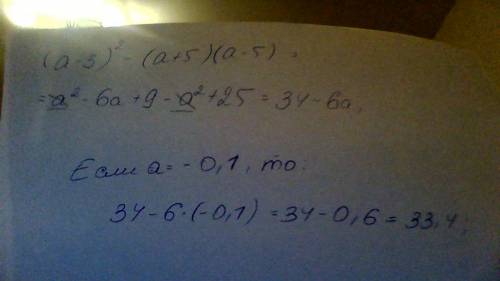 (a-3)² - (a+5)(a-5) =
= a² - 6a + 9 - a² + 25 = 34 - 6a,
Если a = - 0,1, то:
34 - 6·(-0,1) = 34 - 0,6 = 33,4;